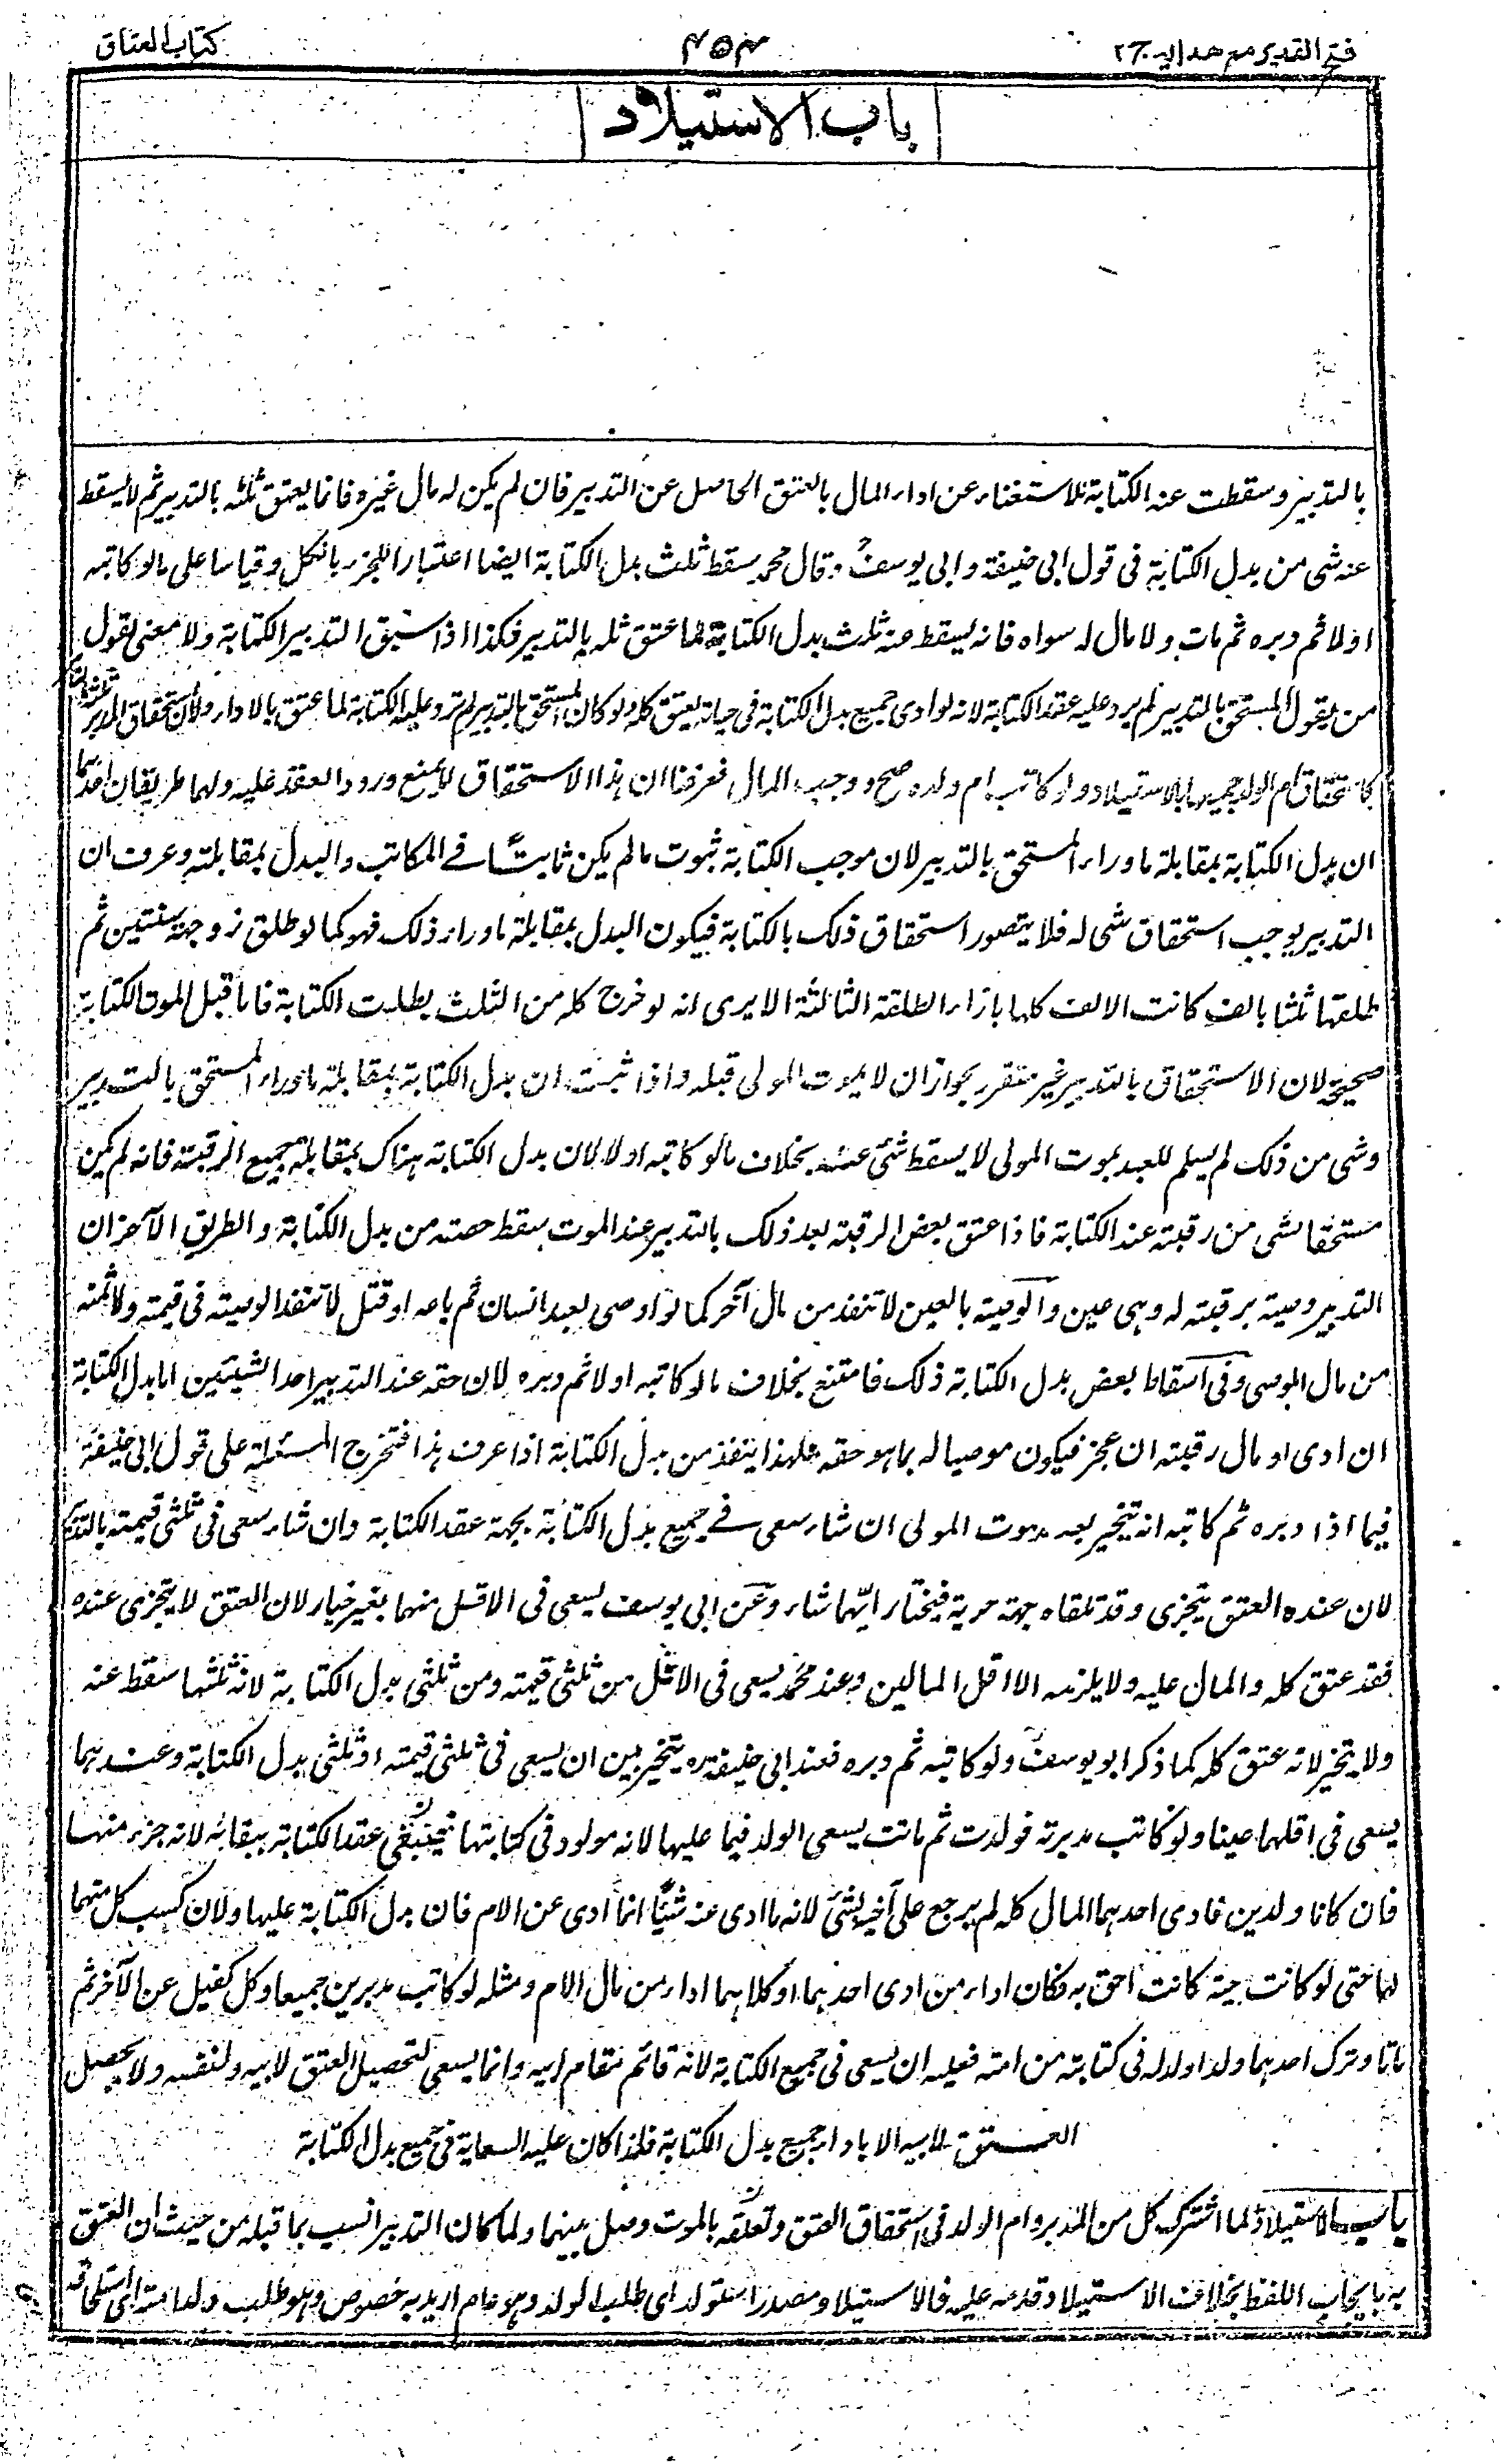 فتح القدير مع هدايه ج٢
٤٥٣
كتاب العتاق
باب الاستيلاد
بالتدبير وسقطت عنه الكتابة للاستغناء عن اداء المال بالعتق الحاصل عن التدبير فان لم يكن له مال غيره فانما يعتق ثلثه بالتدبير ثم لا يسقط
عنه شى من بدل الكتابة فى قول ابى حنيفة وابى يوسف وقال محمد يسقط ثلث بدل الكتابة ايضا اعتبارا للجزء بالكل وقياسا على مالو كاتبه
اولا ثم دبره ثم مات ولا مال له سواه فانه يسقط عنه ثلث بدل الكتابة لما عتق ثلثه بالتدبير فكذا اذا سبق التدبير الكتابة ولا معنى لقول
من يقول المستحق بالتدبير لم يرد عليه عقد الكتابة لانه لو ادى جميع بدل الكتابة فى حياته يعتق كله ولو كان المستحق بالتدبير لم ترد عليه الكتابة لما عتق بالاداء ولان استحقاق المدبر
كاستحقاق ام الولد جميعها بالاستيلاد ولو كاتب ام ولده صح ووجب المال فعرفنا ان هذا الاستحقاق لا يمنع ورود العقد عليه ولهما طريقان احدهما
ان بدل الكتابة بمقابلة ما وراء المستحق بالتدبير لان موجب الكتابة ثبوت ما لم يكن ثابتا فى المكاتب والبدل بمقابلته وعرف ان
التدبير يوجب استحقاق شى له فلا يتصور استحقاق ذلك بالكتابة فيكون البدل بمقابلة ما وراء ذلك فهو كما لو طلق زوجته ثنتين ثم
طلقها ثلثا بالف كانت الالف كلها بازاء الطلقة الثالثة الا يرى انه لو خرج كله من الثلث بطلت الكتابة فاما قبل الموت الكتابة
صحيحة لان الاستحقاق بالتدبير غير متقرر بجواز ان لا يموت المولى قبله واذا ثبت ان بدل الكتابة بمقابلة ما وراء المستحق بالتدبير
وشى من ذلك لم يسلم للعبد بموت المولى لا يسقط شئ عنه بخلاف مالو كاتبه اولا لان بدل الكتابة هناك بمقابلة جميع الرقبة فانه لم يكن
مستحقا لشى من رقبته عند الكتابة فاذا عتق بعض الرقبة بعد ذلك بالتدبير عند الموت سقط حصته من بدل الكتابة والطريق الآخر ان
التدبير وصية برقبته له وهى عين والوصية بالعين لا تنفذ من مال آخر كما لو اوصى بعبد لانسان ثم باعه او قتل لا تنفذ الوصية فى قيمته ولا ثمنه
من مال الموصى وفى اسقاط بعض بدل الكتابة ذلك فامتنع بخلاف مالو كاتبه اولا ثم دبره لان حقه عند التدبير احد الشيئين اما بدل الكتابة
ان ادى او مال رقبته ان عجز فيكون موصيا له بما هو حقه فلهذا ينفذ من بدل الكتابة اذا عرف هذا فتخرج المسئلة على قول ابى حنيفة
فيما اذا دبره ثم كاتبه انه يتخير بعد موت المولى ان شاء سعى فى جميع بدل الكتابة بجهة عقد الكتابة وان شاء سعى فى ثلثى قيمته بالتدبير
لان عنده العتق يتجزى وقد تلقاه جهة حرية فيختار ايهما شاء وعن ابى يوسف يسعى فى الاقل منهما بغير خيار لان العتق لا يتجزى عنده
فقد عتق كله والمال عليه ولا يلزمه الا اقل المالين وعند محمد يسعى فى الاقل من ثلثى قيمته ومن ثلثى بدل الكتابة لانه ثلثها سقط عنه
ولا يتخير لانه عتق كله كما ذكر ابو يوسف ولو كاتبه ثم دبره فعند ابى حنيفة ره يتخير بين ان يسعى فى ثلثى قيمته او ثلثى بدل الكتابة وعندهما
يسعى فى اقلهما عينا ولو كاتب مدبرته فولدت ثم ماتت يسعى الولد فيما عليها لانه مولود فى كتابتها فيبقى عقد الكتابة ببقائه لانه جزء منها
فان كانا ولدين فادى احدهما المال كله لم يرجع على اخيه بشئ لانه ما ادى عنه شيئا انما ادى عن الام فان بدل الكتابة عليها ولان كسب كل منهما
لها حتى لو كانت حية كانت احق به فكان اداء من ادى احدهما او كلاهما اداء من مال الام ومثله لو كاتب مدبرين جميعا وكل كفيل عن الآخر ثم
ماتا وترك احدهما ولدا ولد له فى كتابته من امته فعليه ان يسعى فى جميع الكتابة لانه قائم مقام ابيه وانما يسعى لتحصيل العتق لابيه ولنفسه ولا يحصل
العتق لابيه الا باداء جميع بدل الكتابة فلذا كان عليه السعاية فى جميع بدل الكتابة
باب الاستيلاد لما اشترك كل من المدبر وام الولد فى استحقاق العتق وتعلقه بالموت وصل بينهما ولما كان التدبير انسب بما قبله من حيث ان العتق
به بايجاب اللفظ بخلاف الاستيلاد قدمه عليه فالاستيلاد مصدر استولد اى طلب الولد وهو عام اريد به خصوص وهو طلب ولد امته اى استلحاقه